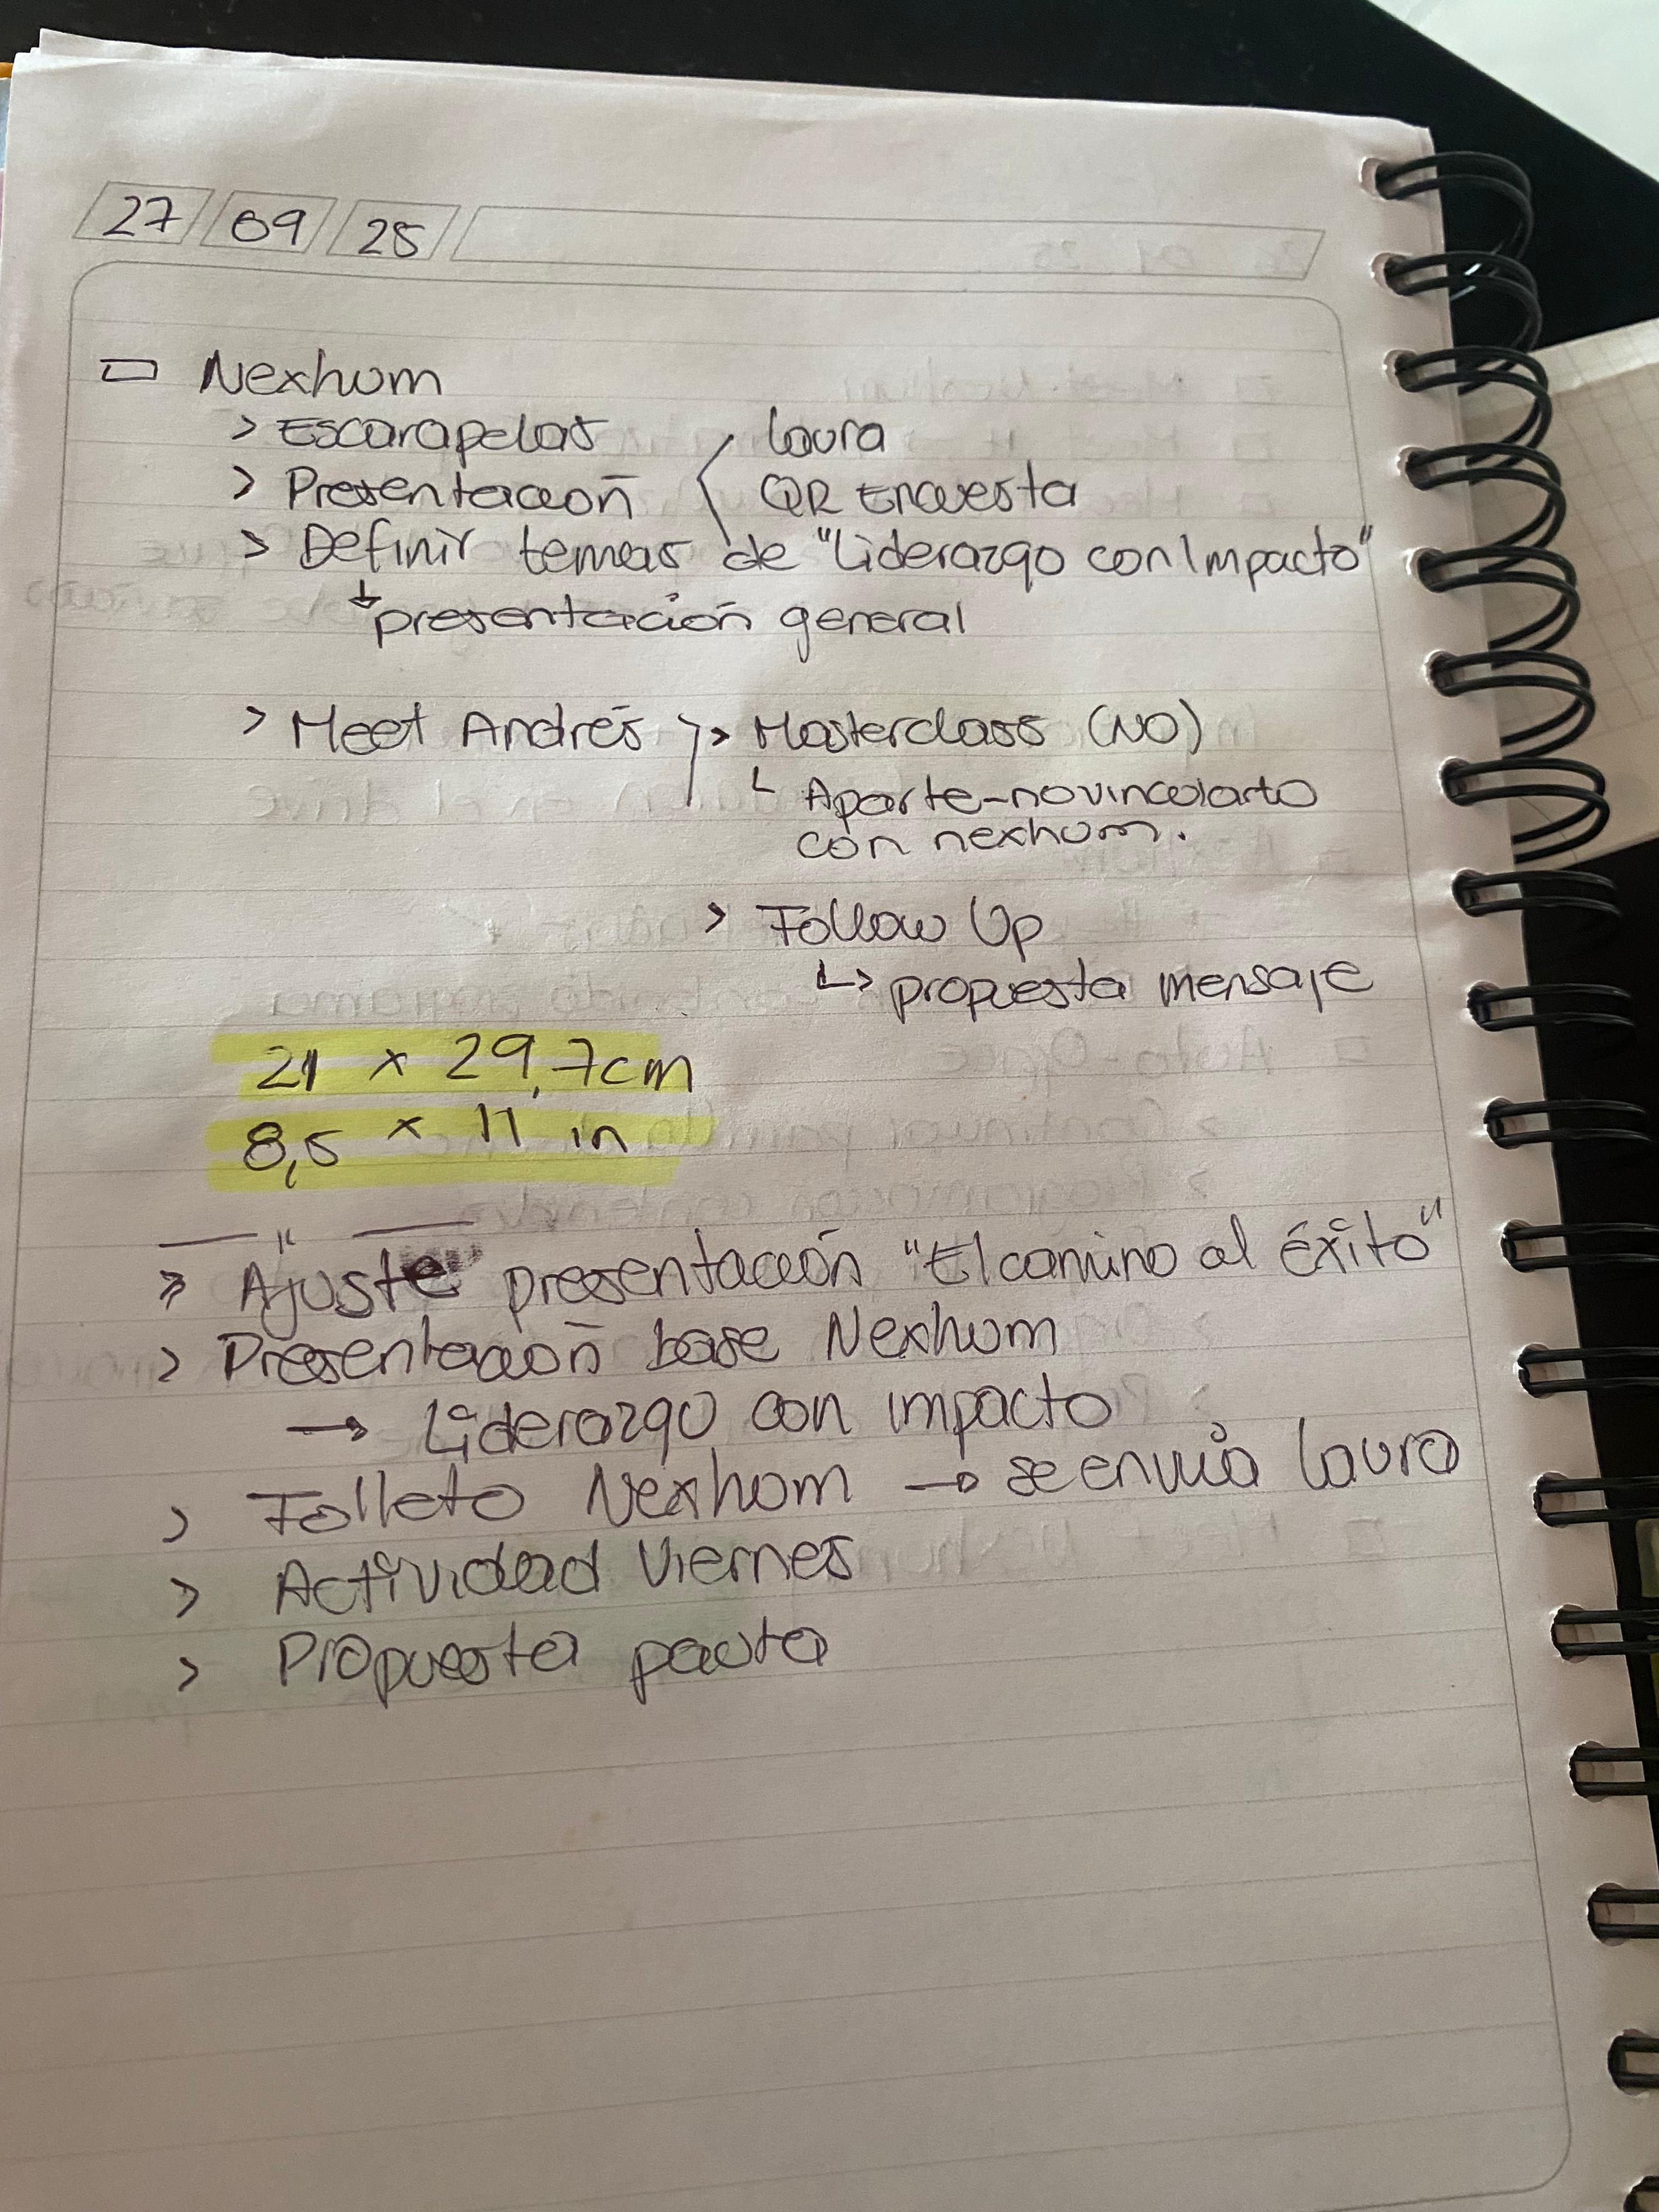 27 09 25
Nexhum
> Escarapelas
> Presentación < Laura
QR Encuesta
> Definir temas de "Liderazgo con Impacto"
presentación general
> Meet Andrés > Masterclass (NO)
Aparte-no vincularto
con nexhum.
> Follow Up
↳ propuesta mensaje
21 x 29,7cm
8,5 x 11 in
> Ajuste presentación "El camino al éxito"
> Presentación base Nexhum
→ Liderazgo con impacto
> Folleto Nexhum → se envía Laura
> Actividad Viernes
> Propuesta pauta